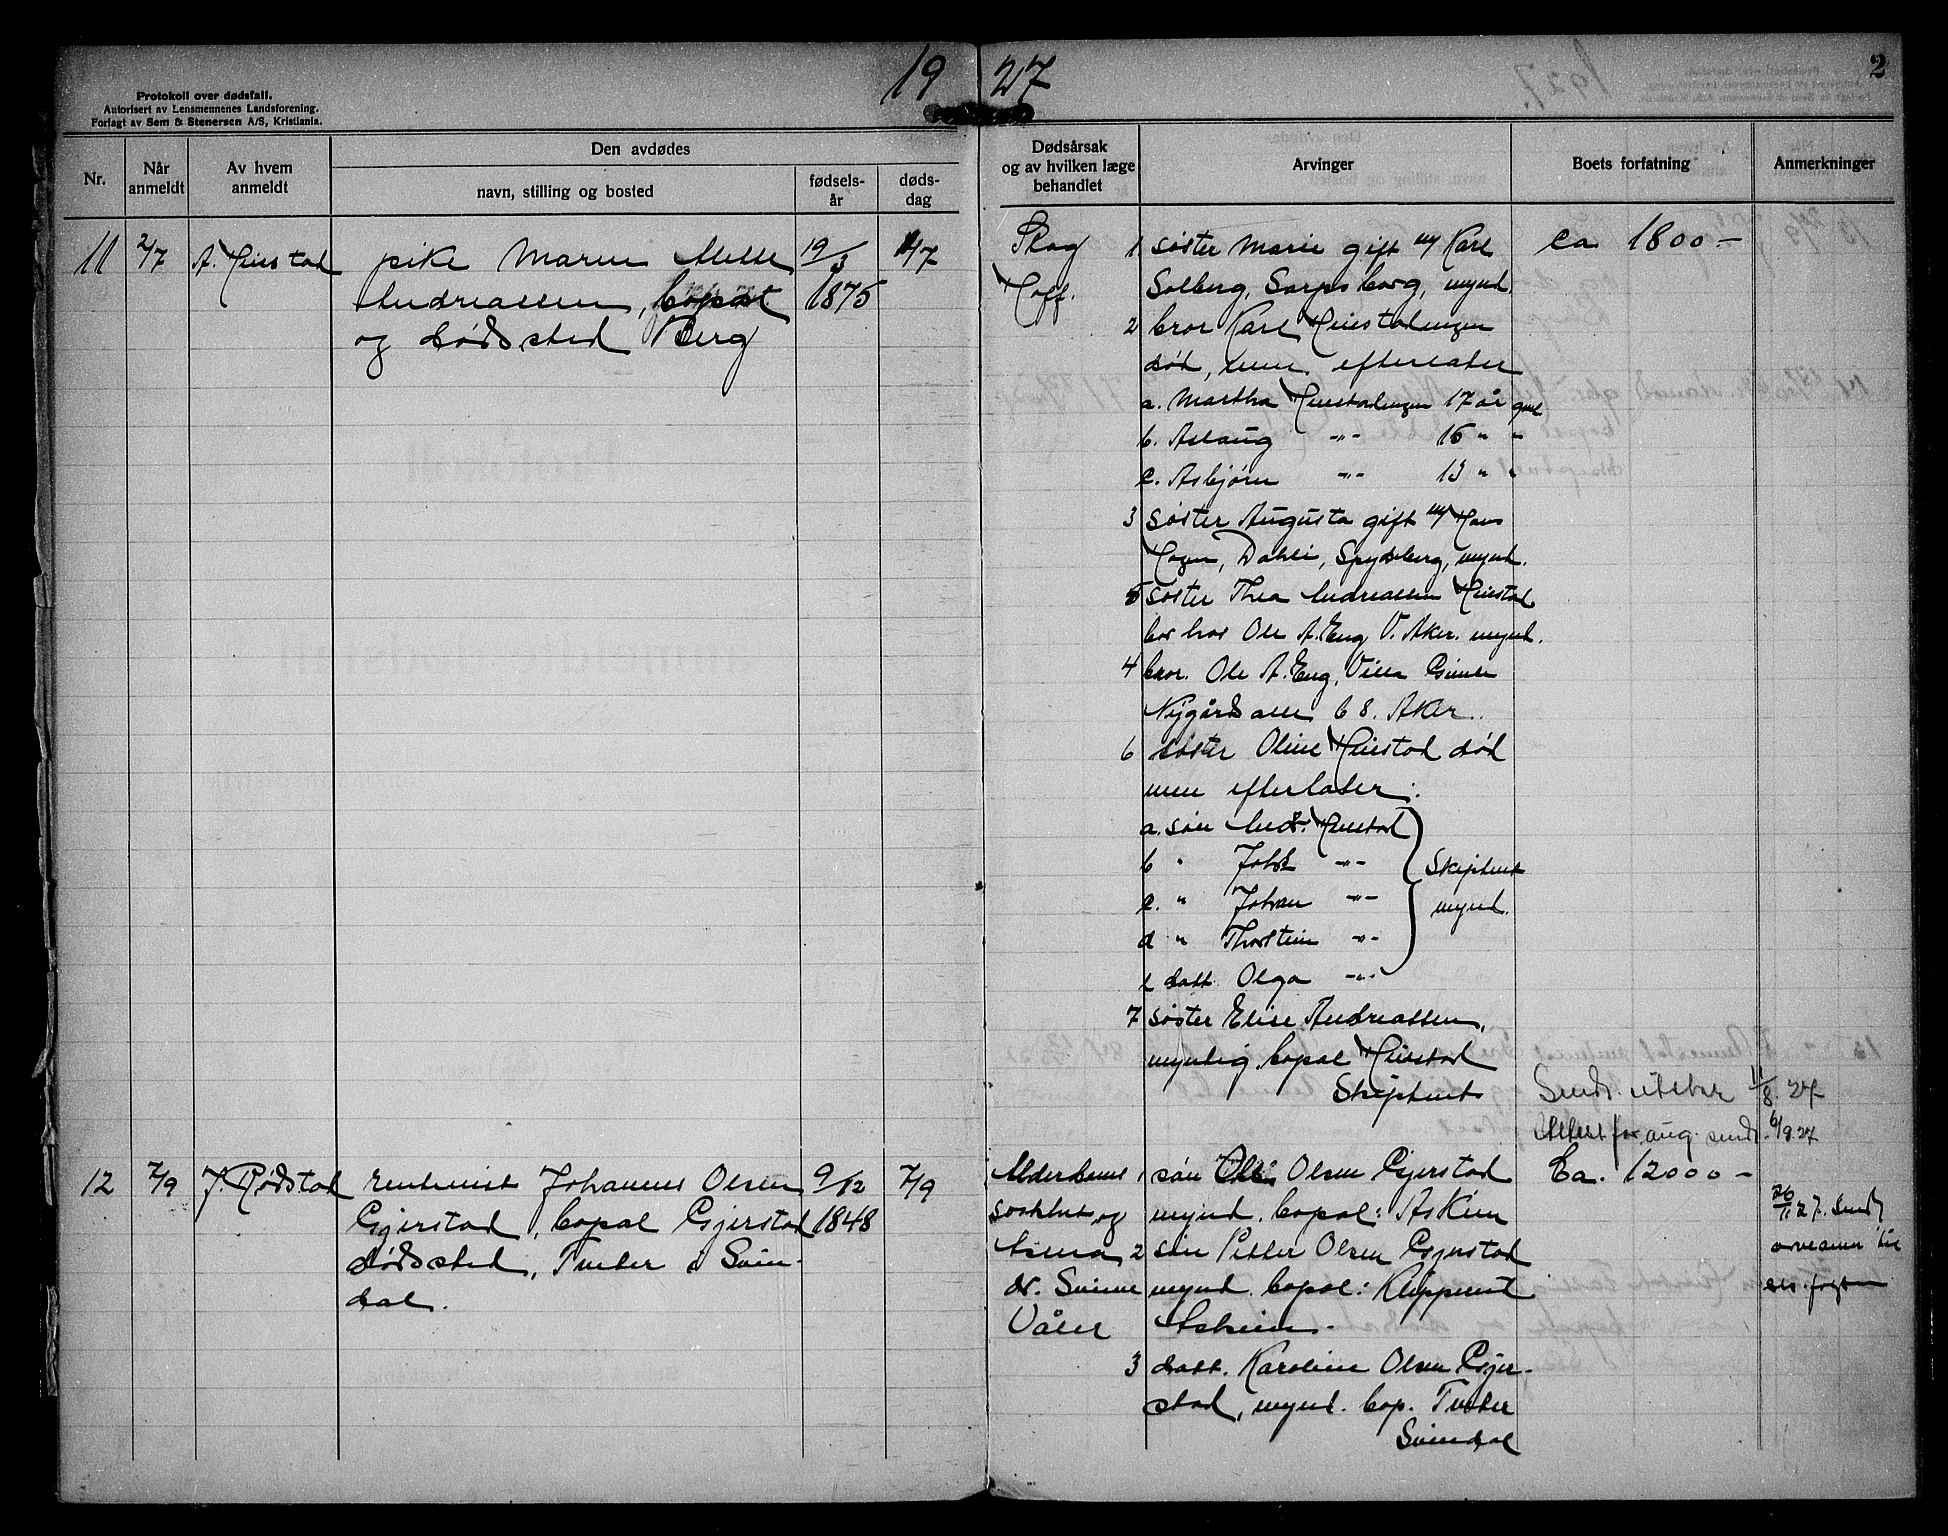 19 27
2
Protokoll over dødsfall.
Autorisert av Lensmennenes Landsforening.
Forlagt av Sem & Stenersen A/S, Kristiania.
Nr.
Når anmeldt
Av hvem anmeldt
Den avdødes
navn, stilling og bosted
fødsels-år
døds-dag
Dødsårsak og av hvilken læge behandlet
Arvinger
Boets forfatning
Anmerkninger
11 2/7 A. Huistad pike Maren Mille 19/3 1/7
Andreassen, bopæl 1875
og dødssted Berg
Skog
Hoff.
1 søster Marie gift m/ Karl
Solberg, Sarpsborg, mynd.
2 bror Karl
død, men efterlater
a. Martha 17 år gml
b. Aslaug -"- 15 " "
c. Asbjørn -"- 13 " "
3 søster Augusta gift m/ Hans
Dahli, Spydeberg, mynd.
5 søster Thea Andreassen Huistad
bor hos Ole A. Eng V. Aker. mynd.
4 bror. Ole A. Eng, Villa Gimle
Nygårds alle 68. Aker.
6 søster Oline Huistad død
men efterlater:
a. søn Andr. Huistad
b " -"-
c. " Johan -"-
d " Thorstein -"-
e datt. Olga -"-
Skiptvet
mynd.
7 søster Elise Andreassen,
myndig bopæl Huistad
Skiptvet
ca 1800 -
Sendt 11/8. 27
Attest for aug. sendt 6/9 27
12 7/9 J. Rødstad rentenist Johannes Olsen 9/12 7/9
Gjerstad, bopæl Gjerstad 1848
dødssted, Tveter i Svin-
dal.
Alderdoms
og
Astma
dr.
Våler
1 søn Ole Olsen Gjerstad
mynd. bopæl: Askim
2 søn Petter Olsen Gjerstad
mynd. bopæl:
Askim.
3 datt. Karoline Olsen Gjer-
stad, mynd. bop. Tveter
Svindal
Ca. 12000 -
26/11 27. Sendt
til